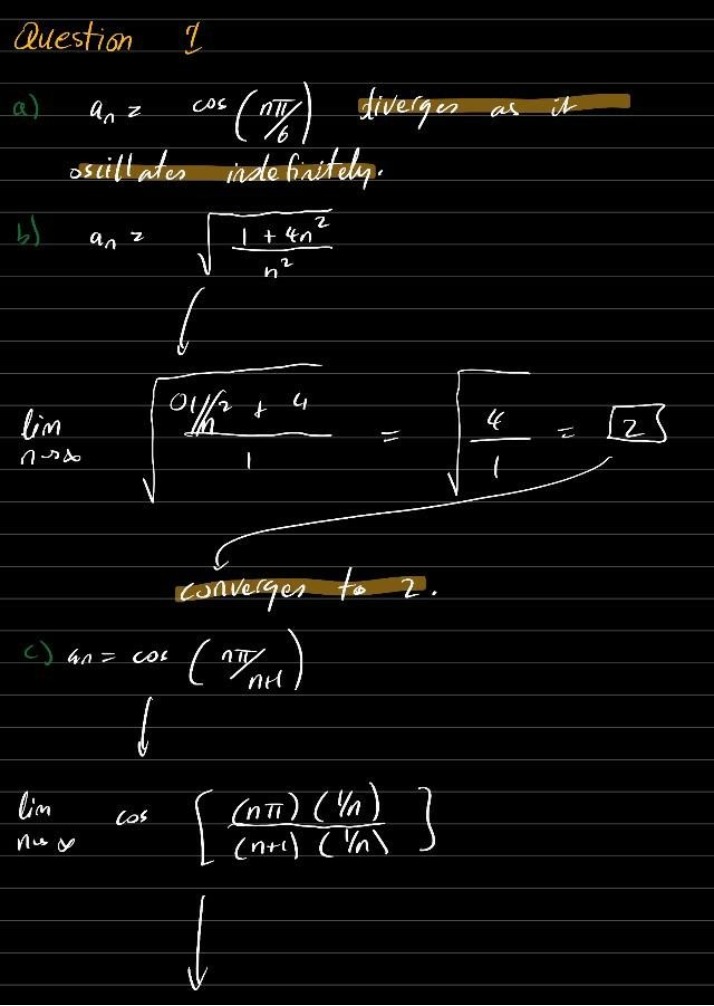 Question 1
a) aₙ = cos (nπ/6) diverges as it
oscillates indefinitely.
b) aₙ = √((1 + 4n²)/n²)
lim n→∞ √((0 1/n² + 4)/1) = √(4/1) = 2
converges to 2.
c) aₙ = cos (nπ/n+1)
lim n→∞ cos [(nπ)(1/n)/(n+1)(1/n)]